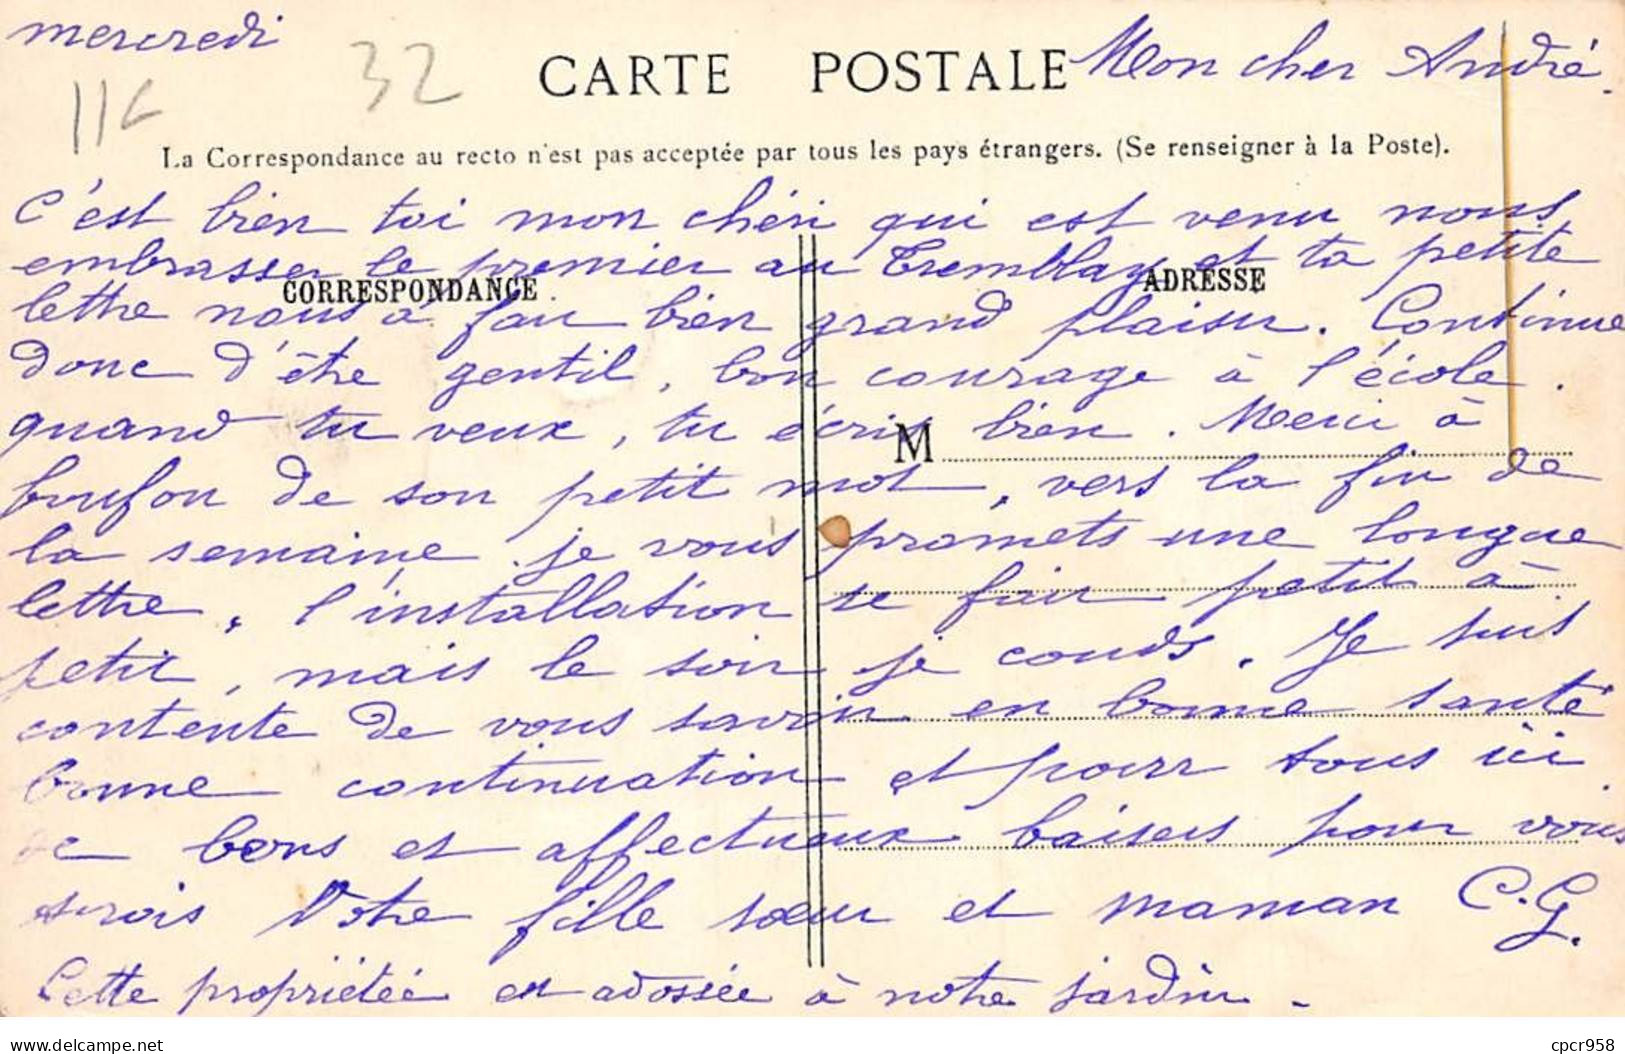 mercredi
32
CARTE POSTALE
Mon cher André.
116
La Correspondance au recto n'est pas acceptée par tous les pays étrangers. (Se renseigner à la Poste).
C'est bien toi mon chéri qui est venu nous
embrasser le premier au Tremblay et ta petite
CORRESPONDANCE
ADRESSE
lettre nous a fait bien grand plaisir. Continue
donc d'être gentil, bon courage à l'école.
quand tu veux, tu écris bien. Merci à
M
de son petit mot, vers la fin de
la semaine je vous promets une longue
lettre, l'installation se fait petit à
petit, mais le soir je couds. Je suis
contente de vous savoir en bonne santé
bonne continuation et pour tous ici
de bons et affectueux baisers pour vous
trois Votre fille sœur et maman C.G.
Cette propriétée est adossée à notre jardin -
delcampe.net
cpcr958